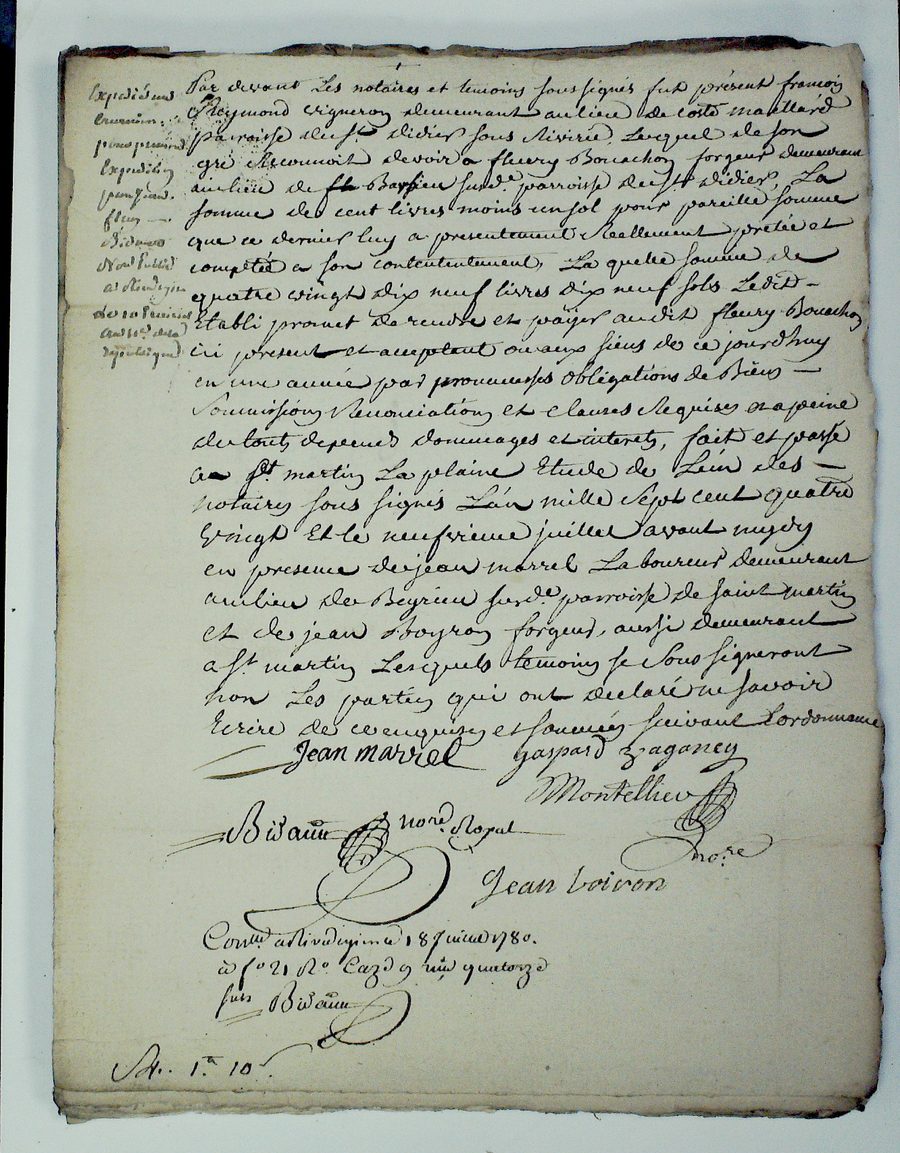 Par devant Les notaires et temoins sous signés fut présent françois
Reymond vigneron demeurant au lieu de coste maillard
parroisse de St. didier sous Riverie, Lequel de son
gré Reconnoit devoir a fleury Bouchon forgeur demeurant
au lieu de Barbieu sur de. parroisse de St didier, La
somme de cent livres moins un sol pour pareille somme
que ce dernier luy a presentement Reellement pretée et
comptée a son contententement, La quelle somme de
quatre vingt dix neuf livres dix neuf sols Ledit
Etabli promet de rendre et païjer audit fleury Bouachon
ici present et acceptant ou aux siens de ce jourdhuy
en une année par promesses obligations de Biens
Soumissions Renonciations et clauses Requises a peine
de touts depends dommages et interets, fait et passé
a St. martin La plaine Etude de L'ún des
notaires sous signés L'án mille Sept cent quatre
vingt Et le neufvieme juillet avant midy
en presence de jean marrel Laboureur demeurant
au lieu de Beyrieu sur de. parroisse de saint martin
et de jean Voyron forgeur, aussi demeurant
a St. martin Lesquels temoins se Sous signeront
non Les parties qui ont declaré ne savoir
Ecrire de ce enquises et sommées suivant Lordonnance
Jean marrel gaspard
Montellier
nore
Bidaud nore. Royal
Jean voiron
Conllé a Rivedegier le 18 Juillet 1780.
a fo 21 Ro Caze 9 quatorze
sols Bidaud
1. 10
Expedié une
pour premiere
Expedition
par Jean
fleury
Bidaud
Not. Public
a Rivedegier
le 10
an de la
republique